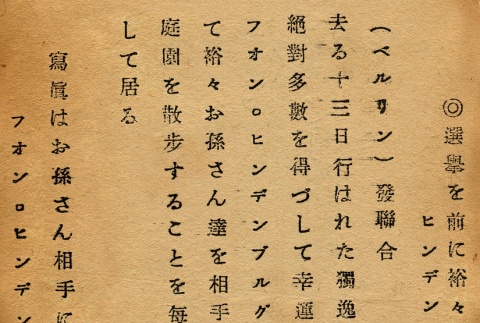 ◎選擧を前に裕々
ヒンデン
(ベルリン)發聯合
去る十三日行はれた獨逸
絕對多數を得づして幸運
フオン。ヒンデンブルグ
て裕々お孫さん達を相手
庭園を散步することを每
して居る
寫眞はお孫さん相手に
フオン。ヒンデン